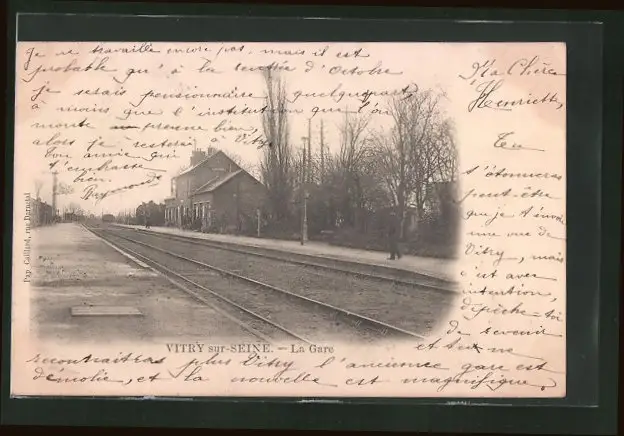 Ma Chère
Henriette,
Tu
t'étonneras
peut-être
que je t'envoie
une vue de
Vitry, mais
c'est avec
intention,
dépêche-toi
de revenir
et tu ne
recontraitras plus Vitry l'ancienne gare est
démolie, et la nouvelle est magnifique.
Je ne travaille encore pas, mais il est
probable qu'à la rentrée d'Octobre
je serais pensionnaire quelquepart,
à moins que l'institution que l'on
monte prenne bien,
alors je resterai à Vitry.
Ton amie qui
t'embrasse
bien.
Raymonde
Pap. Caillard, rue Darnatal
VITRY sur-SEINE. — La Gare